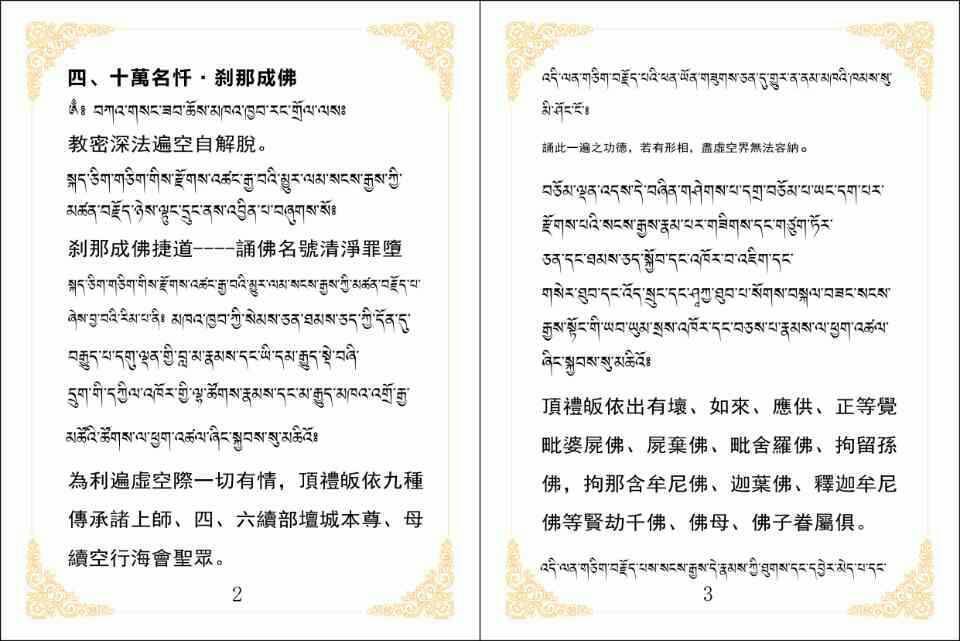 四、十萬名懺·刹那成佛
ༀ༔ བཀའ་གསང་ཟབ་ཆོས་མཁའ་ཁྱབ་རང་གྲོལ་ལས༔
教密深法遍空自解脫。
སྐད་ཅིག་གཅིག་གིས་རྫོགས་འཚང་རྒྱ་བའི་མྱུར་ལམ་སངས་རྒྱས་ཀྱི་
མཚན་བརྗོད་ཉེས་ལྟུང་དྲུང་ནས་འབྱིན་པ་བཞུགས་སོ༔
刹那成佛捷道----誦佛名號清淨罪墮
སྐད་ཅིག་གཅིག་གིས་རྫོགས་འཚང་རྒྱ་བའི་མྱུར་ལམ་སངས་རྒྱས་ཀྱི་མཚན་བརྗོད་པ་
ཞེས་བྱ་བའི་རིམ་པ་ནི༔ མཁའ་ཁྱབ་ཀྱི་སེམས་ཅན་ཐམས་ཅད་ཀྱི་དོན་དུ་
བརྒྱུད་པ་དགུ་ལྡན་གྱི་བླ་མ་རྣམས་དང་ཡི་དམ་རྒྱུད་སྡེ་བཞི་
དྲུག་གི་དཀྱིལ་འཁོར་གྱི་ལྷ་ཚོགས་རྣམས་དང་མ་རྒྱུད་མཁའ་འགྲོ་རྒྱ་
མཚོའི་ཚོགས་ལ་ཕྱག་འཚལ་ཞིང་སྐྱབས་སུ་མཆིའོ༔
為利遍虛空際一切有情，頂禮皈依九種
傳承諸上師、四、六續部壇城本尊、母
續空行海會聖眾。
2
འདི་ལན་གཅིག་བརྗོད་པའི་ཕན་ཡོན་གཟུགས་ཅན་དུ་གྱུར་ན་ནམ་མཁའི་ཁམས་སུ་
མི་ཤོང་ངོ༔
誦此一遍之功德，若有形相，盡虛空界無法容納。
བཅོམ་ལྡན་འདས་དེ་བཞིན་གཤེགས་པ་དགྲ་བཅོམ་པ་ཡང་དག་པར་
རྫོགས་པའི་སངས་རྒྱས་རྣམ་པར་གཟིགས་དང་གཙུག་ཏོར་
ཅན་དང་ཐམས་ཅད་སྐྱོབ་དང་འཁོར་བ་འཇིག་དང་
གསེར་ཐུབ་དང་འོད་སྲུང་དང་ཤཱཀྱ་ཐུབ་པ་སོགས་བསྐལ་བཟང་སངས་
རྒྱས་སྟོང་གི་ཡབ་ཡུམ་སྲས་འཁོར་དང་བཅས་པ་རྣམས་ལ་ཕྱག་འཚལ་
ཞིང་སྐྱབས་སུ་མཆིའོ༔
頂禮皈依出有壞、如來、應供、正等覺
毗婆屍佛、屍棄佛、毗舍羅佛、拘留孫
佛，拘那含牟尼佛、迦葉佛、釋迦牟尼
佛等賢劫千佛、佛母、佛子眷屬俱。
འདི་ལན་གཅིག་བརྗོད་པས་སངས་རྒྱས་དེ་རྣམས་ཀྱི་ཐུགས་དང་དབྱེར་མེད་པ་དང་
3